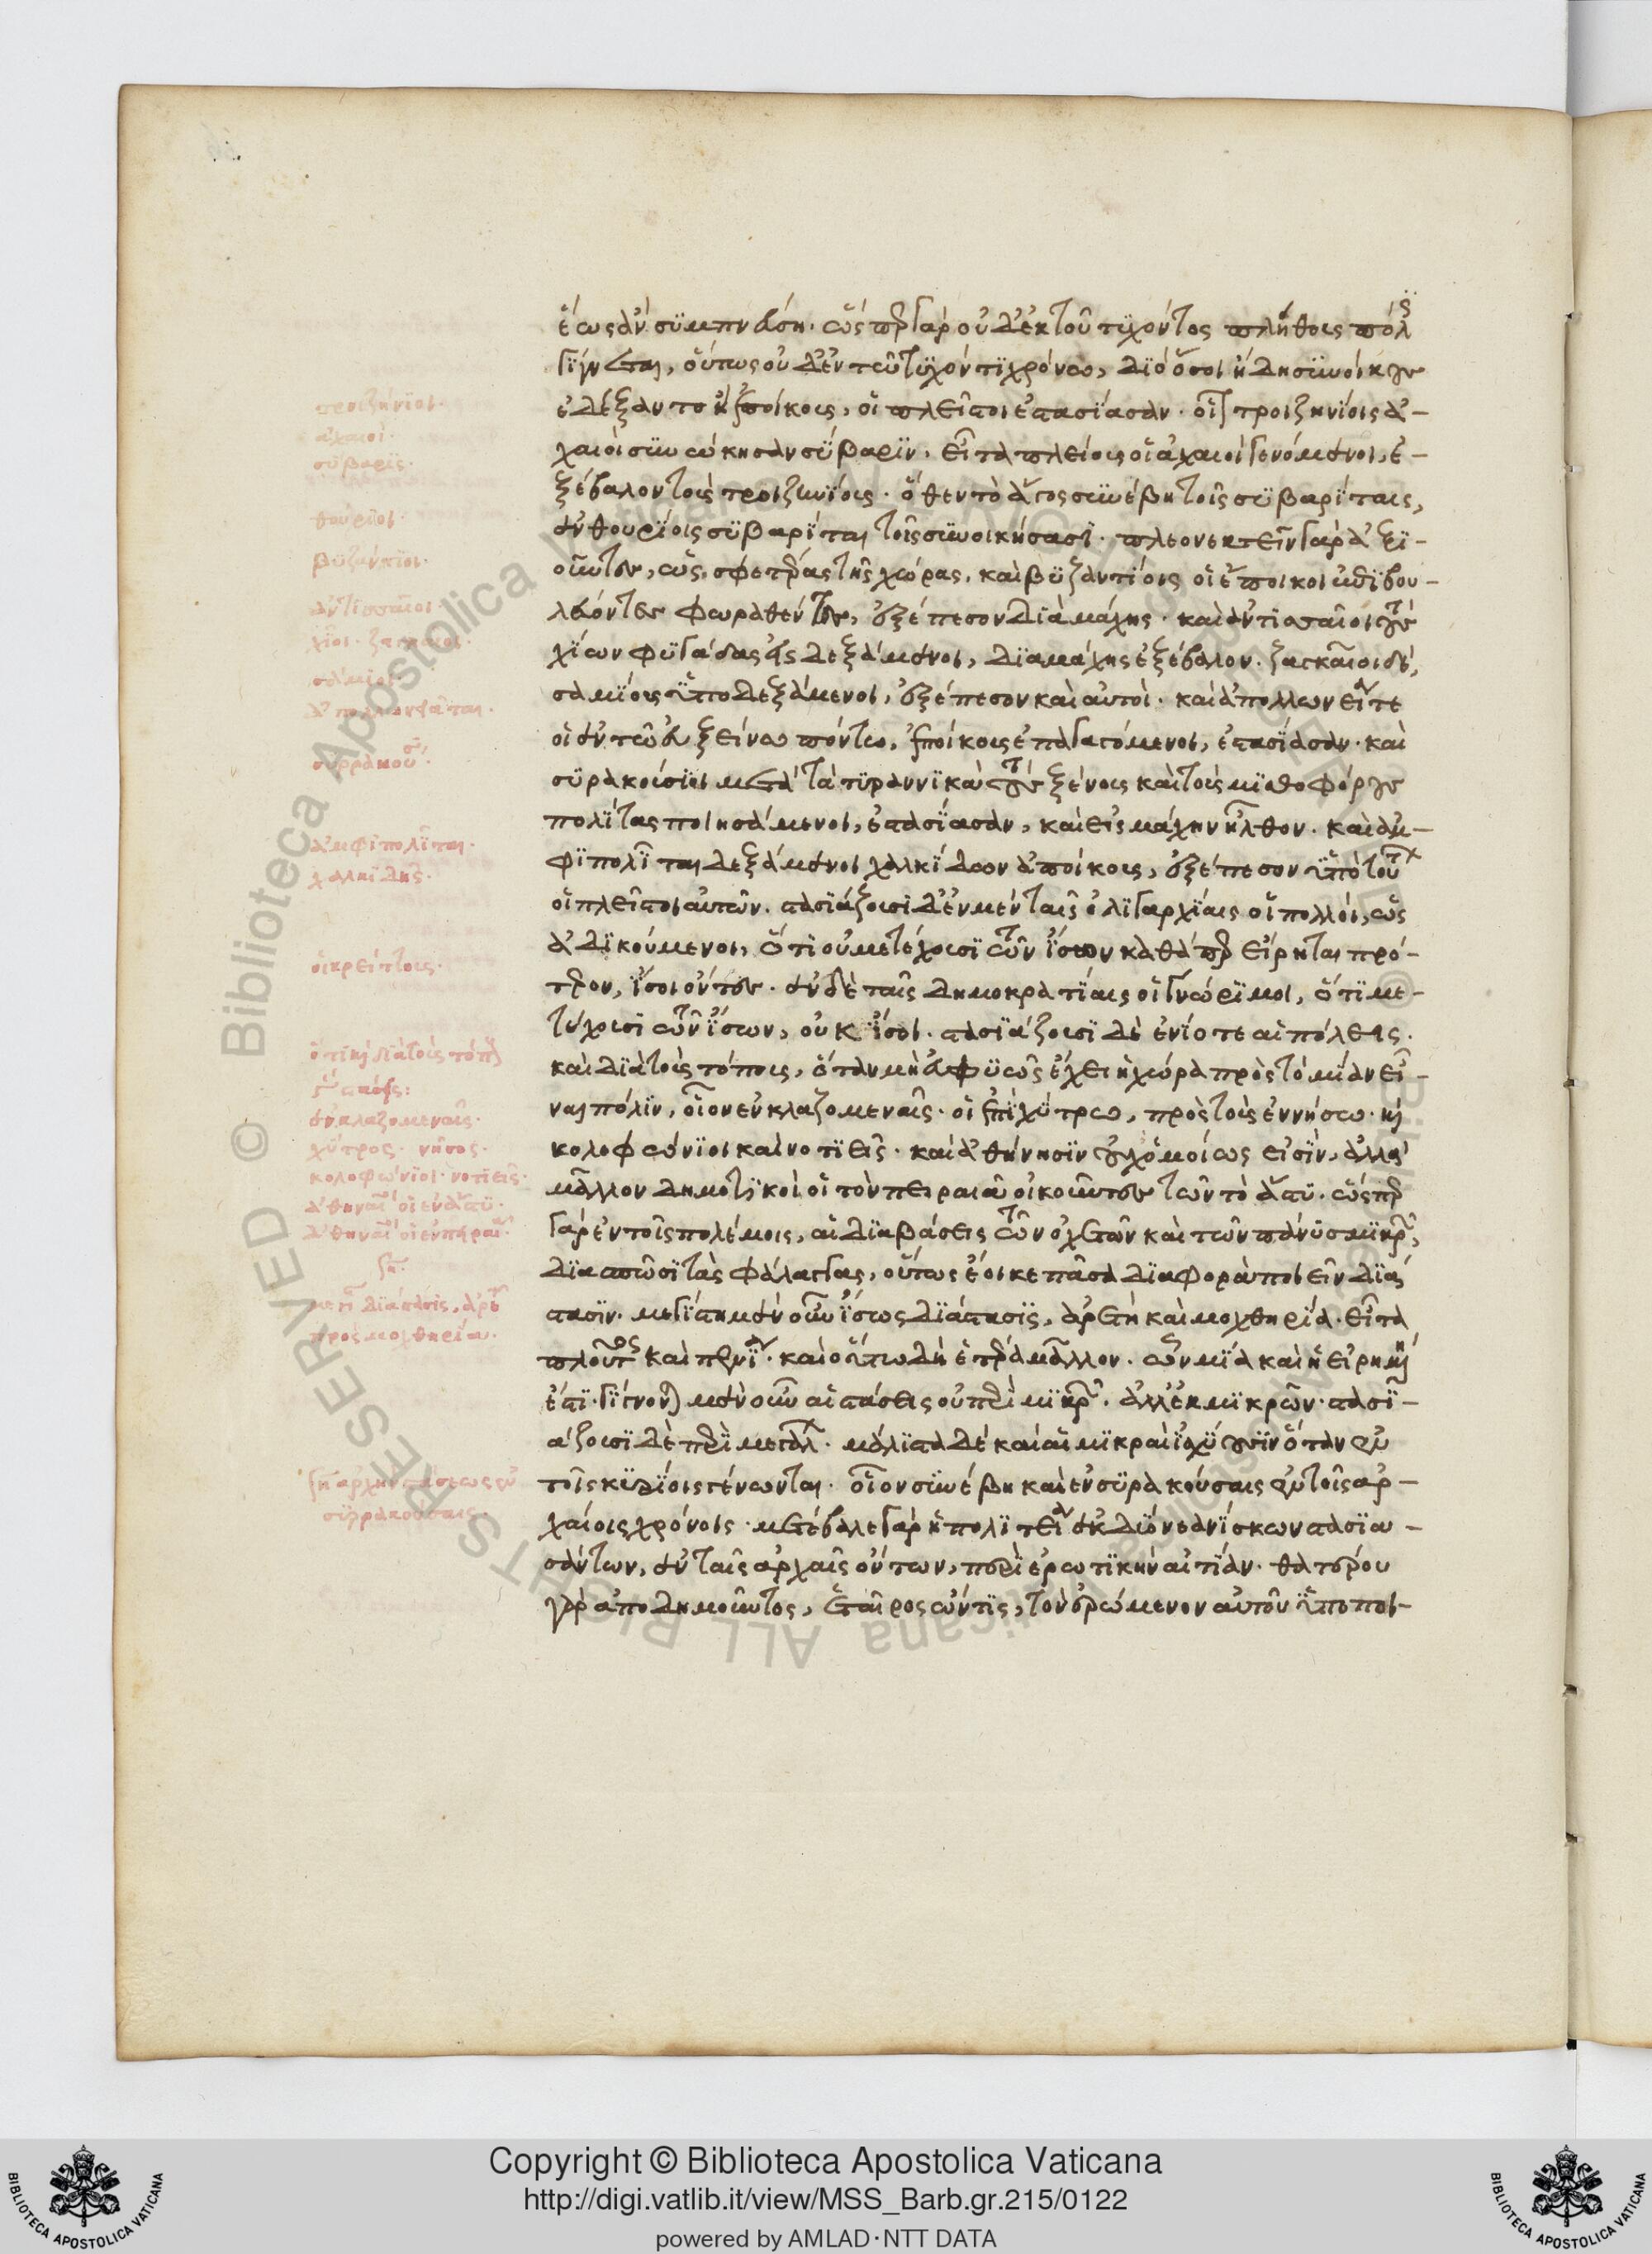 ἕως ἂν συμπνεύσῃ. ὥσπερ γὰρ οὐδ' ἐκ τοῦ τυχόντος πλήθους πόλις
γίγνεται, οὕτως οὐδ' ἐν τῷ τυχόντι χρόνῳ, διὸ ὅσοι ἤδη συνοίκους
ἐδέξαντο ἢ ἐποίκους, οἱ πλεῖστοι ἐστασίασαν. οἷον τροιζηνίοις ἀ-
χαιοὶ συνῴκησαν σύβαριν. εἶτα πλείους οἱ ἀχαιοὶ γενόμενοι, ἐ-
ξέβαλον τοὺς τροιζηνίους. ὅθεν τὸ ἄγος συνέβη τοῖς συβαρίταις,
ἐν θουρίοις συβαρῖται τοῖς συνοικήσασι. πλεονεκτεῖν γὰρ ἀξι-
οῦντες, ὡς σφετέρας τῆς χώρας. καὶ βυζαντίοις οἱ ἔποικοι ἐπιβου-
λεύοντες φωραθέντες, ἐξέπεσον διὰ μάχης. καὶ ἀντισσαῖοι τοὺς
χίων φυγάδας εἰσδεξάμενοι, διὰ μάχης ἐξέβαλον. ζαγκαῖοι δὲ,
σαμίους ὑποδεξάμενοι, ἐξέπεσον καὶ αὐτοί. καὶ ἀπολλωνιᾶται
οἱ ἐν τῷ εὐξείνῳ πόντῳ, ἐποίκους ἐπαγαγόμενοι, ἐστασίασαν. καὶ
συρακούσιοι μετὰ τὰ τυραννικὰ τοὺς ξένους καὶ τοὺς μισθοφόρους
πολίτας ποιησάμενοι, ἐστασίασαν, καὶ εἰς μάχην ἦλθον. καὶ ἀμ-
φιπολῖται δεξάμενοι χαλκιδέων ἀποίκους, ἐξέπεσον ὑπὸ τούτων
οἱ πλεῖστοι αὐτῶν. στασιάζουσι δ' ἐν μὲν ταῖς ὀλιγαρχίαις οἱ πολλοὶ, ὡς
ἀδικούμενοι, ὅτι οὐ μετέχουσι τῶν ἴσων καθάπερ εἴρηται πρό-
τερον, ἴσοι ὄντες. ἐν δὲ ταῖς δημοκρατίαις οἱ γνώριμοι, ὅτι με-
τέχουσι τῶν ἴσων, οὐκ ἴσοι. στασιάζουσι δὲ ἐνίοτε αἱ πόλεις.
καὶ διὰ τοὺς τόπους, ὅταν μὴ εὐφυῶς ἔχει ἡ χώρα πρὸς τὸ μίαν εἶ-
ναι πόλιν, οἷον ἐν κλαζομεναῖς. οἱ ἐπὶ χύτρῳ, πρὸς τοὺς ἐν νήσῳ. καὶ
κολοφώνιοι καὶ νοτιεῖς. καὶ ἀθήνησιν οὐχ ὁμοίως εἰσὶν, ἀλλὰ
μᾶλλον δημοτικοὶ οἱ τὸν πειραιᾶ οἰκοῦντες τῶν τὸ ἄστυ. ὥσπερ
γὰρ ἐν τοῖς πολέμοις, αἱ διαβάσεις τῶν ὀχετῶν καὶ τῶν πάνυ σμικρῶν,
διασπῶσι τὰς φάλαγγας, οὕτως ἔοικε πᾶσα διαφορὰ ποιεῖν διά-
στασιν. μεγίστη μὲν οὖν ἴσως διάστασις, ἀρετὴ καὶ μοχθηρία. εἶτα
πλοῦτος καὶ πενία. καὶ οὕτω δὴ ἑτέρα μᾶλλον. ὧν μία καὶ ἡ εἰρημένη
ἐστί. γίγνονται μὲν οὖν αἱ στάσεις οὐ περὶ μικρῶν. ἀλλ' ἐκ μικρῶν. στασι-
άζουσι δὲ περὶ μεγάλων. μάλιστα δὲ καὶ αἱ μικραὶ ἰσχύουσιν ὅταν ἐν
τοῖς κυρίοις γένωνται. οἷον συνέβη καὶ ἐν συρακούσαις ἐν τοῖς ἀρ-
χαίοις χρόνοις. μετέβαλε γὰρ ἡ πολιτεία ἐκ δύο νεανίσκων στασια-
σάντων, ἐν ταῖς ἀρχαῖς ὄντων, περὶ ἐρωτικὴν αἰτίαν. θατέρου
γὰρ ἀποδημοῦντος, ἑταῖρος ὤν τις, τὸν ἐρώμενον αὐτοῦ ὑποποι-
τροιζήνιοι.
ἀχαιοί.
σύβαρις.
θούριοι.
βυζάντιοι.
ἀντισσαῖοι.
χῖοι. ζαγκαῖοι.
σάμιοι.
ἀπολλωνιᾶται.
συρρακούσιοι.
ἀμφιπολῖται.
χαλκιδεῖς.
ὅτι καὶ διὰ τοὺς τόπους
ἐν κλαζομεναῖς.
χύτρος. νῆσος.
κολοφώνιοι. νοτιεῖς.
ἀθηναῖοι οἱ ἐν ἄστυ.
ἀθηναῖοι οἱ ἐν πειραιεῖ.
ση.
διάστασις, ἀρετὴ
πρὸς μοχθηρίαν.
ἀρχὴν στάσεως ἐν
συρρακούσαις.
Copyright © Biblioteca Apostolica Vaticana
http://digi.vatlib.it/view/MSS_Barb.gr.215/0122
powered by AMLAD·NTT DATA
BIBLIOTECA APOSTOLICA VATICANA
BIBLIOTECA APOSTOLICA VATICANA